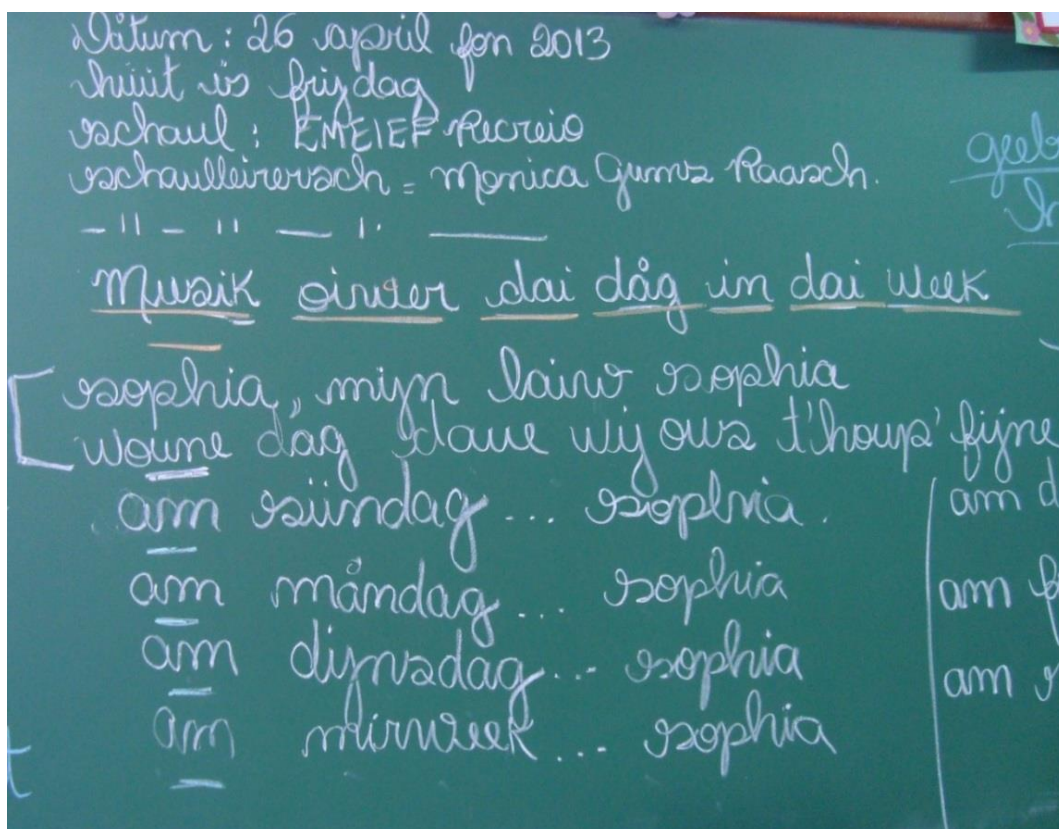 Dåtum: 26 april fon 2013
hüüt is frijdag
schaul: EMEIEF Recreio
schaulleirersch = Monica Gums Raasch.
Musik oiwer dai dåg in dai week
sophia, mijn laiw sophia
woune dag daue wij ous t'houp' fijne
am sündag ... sophia.
am måndag ... sophia
am dijnsdag ... sophia
am mirweek ... sophia
am
am
am